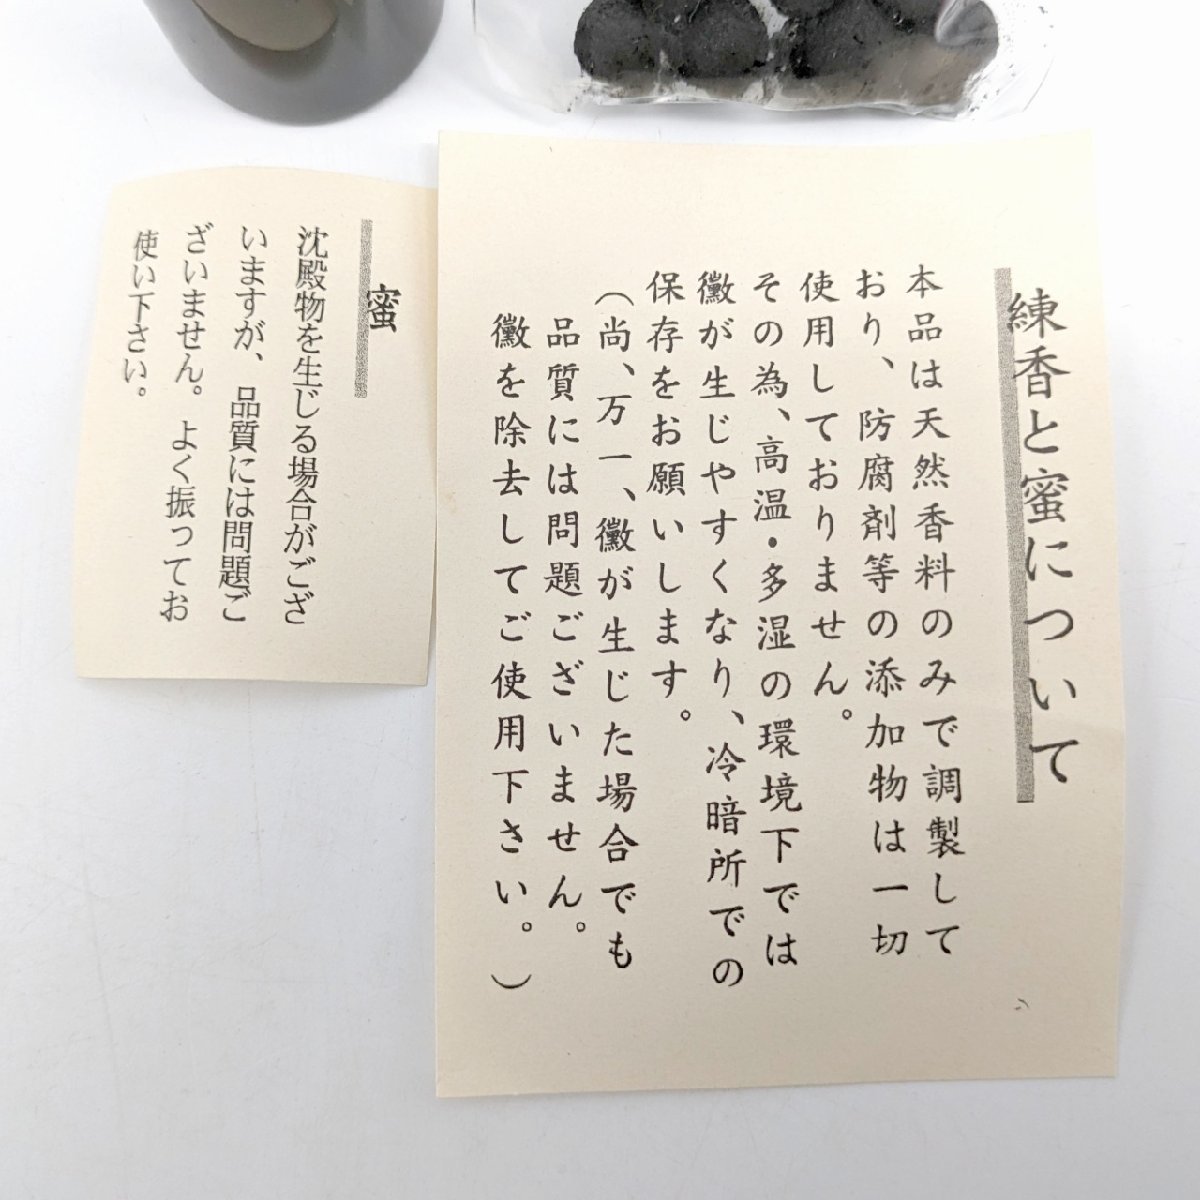 練香と蜜について
本品は天然香料のみで調製して
おり、防腐剤等の添加物は一切
使用しておりません。
その為、高温・多湿の環境下では
黴が生じやすくなり、冷暗所での
保存をお願いします。
（尚、万一、黴が生じた場合でも
品質には問題ございません。
黴を除去してご使用下さい。）
蜜
沈殿物を生じる場合がござ
いますが、品質には問題ご
ざいません。よく振ってお
使い下さい。